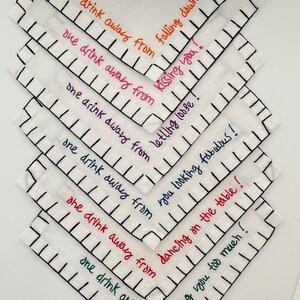 drink away from falling down
one drink away from kissing you!
one drink away from letting loose!
one drink away from you looking fabulous!
one drink away from dancing on the table!
one drink away
you too much!